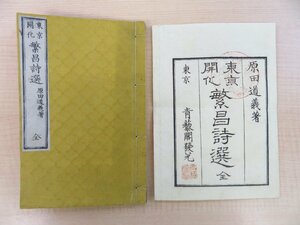 東京
開化
繁昌詩選
原田道義著
全
原田道義著
東京
開化
繁昌詩選
全
東京
青黎閣發兌